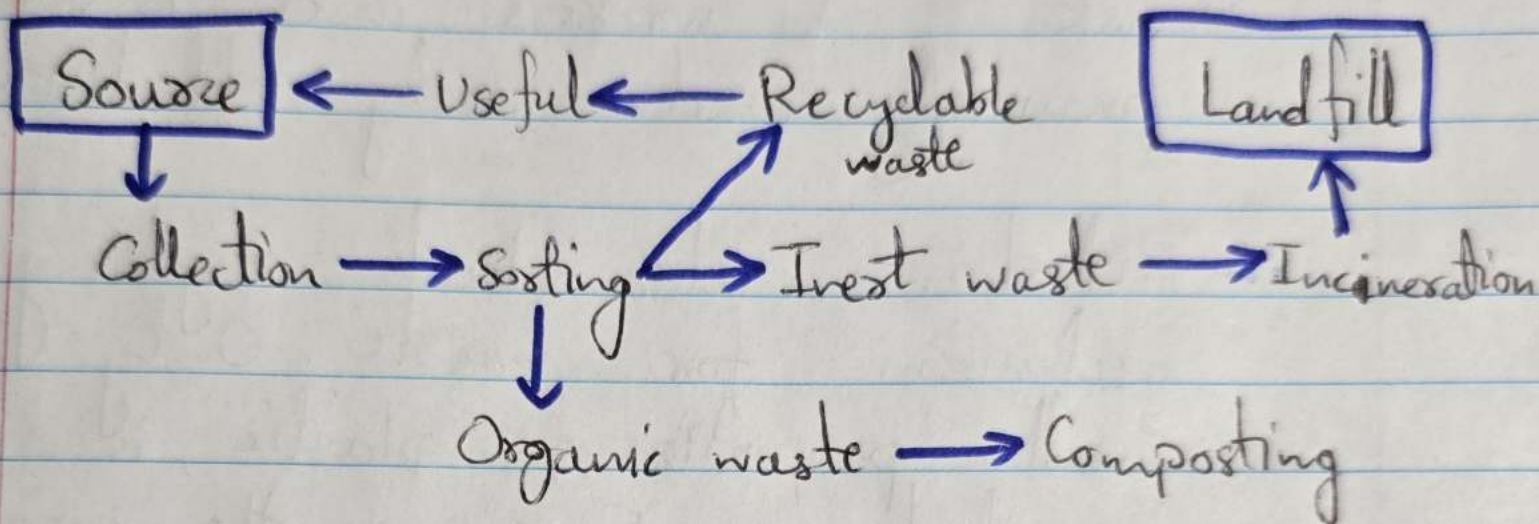 Source ← Useful ← Recyclable waste Landfill
Collection → Sorting → Inert waste → Incineration
Organic waste → Composting